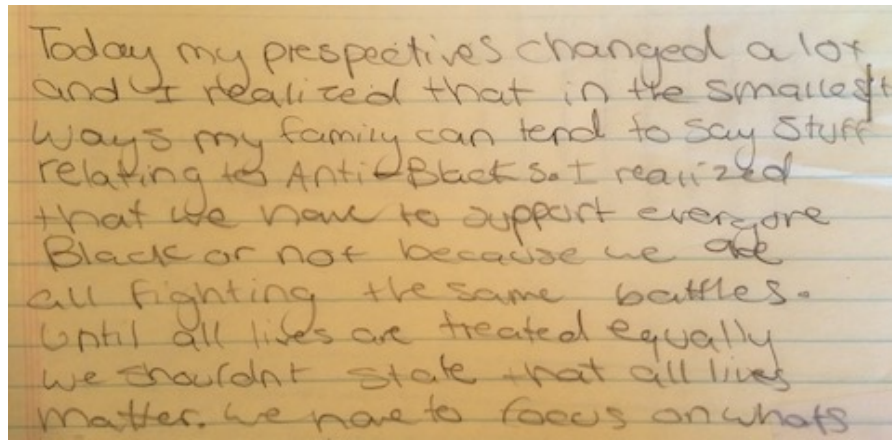 Today my prespectives changed a lot
and I realized that in the smallest
ways my family can tend to say stuff
relating to Anti-Blacks. I realized
that we have to support everyone
Black or not because we are
all fighting the same battles.
Until all lives are treated equally
we shouldnt state that all lives
matter. We have to focus on whats